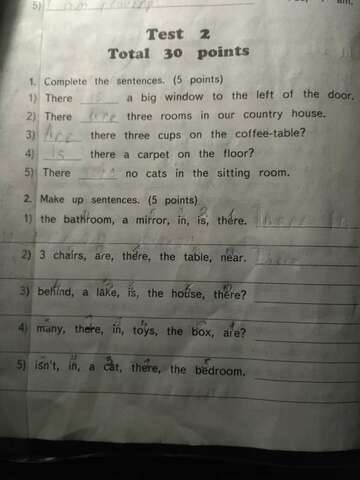 5) I am
Test 2
Total 30 points
1. Complete the sentences. (5 points)
1) There is a big window to the left of the door.
2) There are three rooms in our country house.
3) Are there three cups on the coffee-table?
4) is there a carpet on the floor?
5) There no cats in the sitting room.
2. Make up sentences. (5 points)
1) the bathroom, a mirror, in, is, there. There
2) 3 chairs, are, there, the table, near. There
3) behind, a lake, is, the house, there?
4) many, there, in, toys, the box, are?
5) isn't, in, a cat, there, the bedroom.